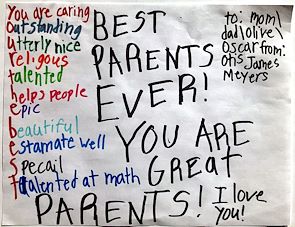 You are caring
outstanding
utterly nice
religous
talented
helps people
epic
beautiful
estamate well
specail
talented at math
BEST
PARENTS
EVER!
YOU ARE
GREAT
PARENTS!
to: mom\
dad\olive\
Oscar from:
Otis James
Meyers
I love
you!